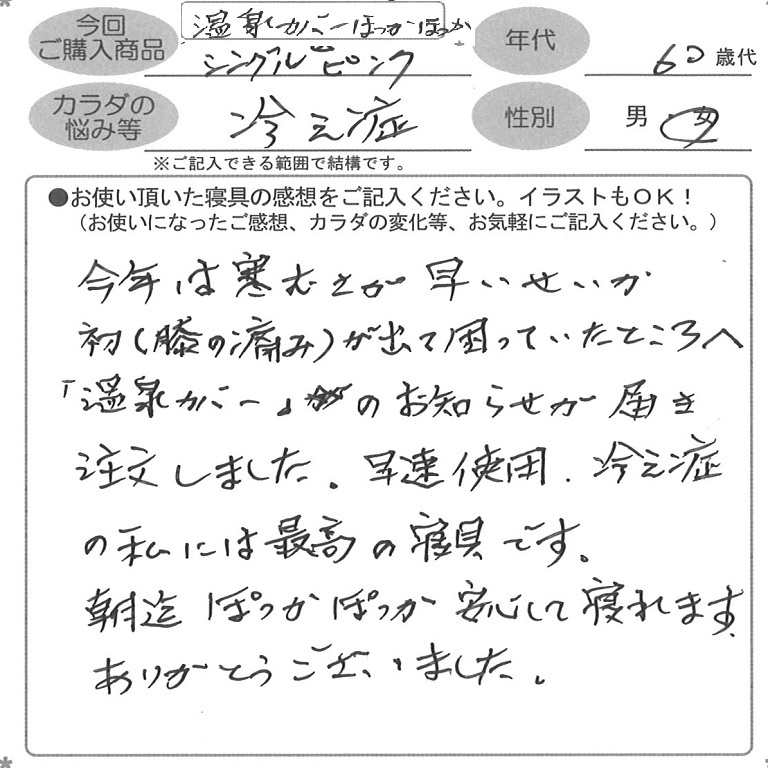 今回
ご購入商品
温泉カバーぽっかぽっか
シングルピンク
年代
60歳代
カラダの
悩み等
冷え症
性別
男 女
※ご記入できる範囲で結構です。
●お使い頂いた寝具の感想をご記入ください。イラストもOK！
（お使いになったご感想、カラダの変化等、お気軽にご記入ください。）
今年は寒さが早いせいか
初(膝の痛み)が出て困っていたところへ
「温泉カバー」のお知らせが届き
注文しました。早速使用．冷え症
の私には最高の寝具です。
朝迄ぽっかぽっか安心して寝れます
ありがとうございました。